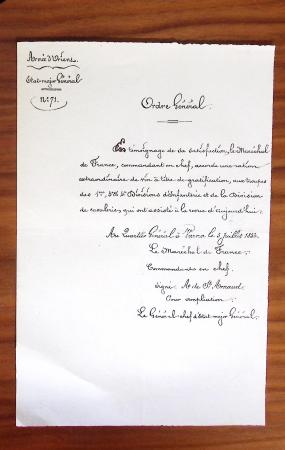 Armée d'Orient.
Etat-major Général
N.° 71.
Ordre Général.
En témoignage de sa satisfaction, le Maréchal
de France, commandant en chef, accorde une ration
extraordinaire de vin à titre de gratification, aux troupes
des 1ère, 3e & 4e Divisions d'Infanterie et de la Division
de cavalerie qui ont assisté à la revue d'aujourd'hui.
Au Quartier Général à Varna le 5 juillet
Le Maréchal de France
Commandant en chef.
signé: A. de St Arnaud.
Pour ampliation:
Le Général chef d'état-major Général.